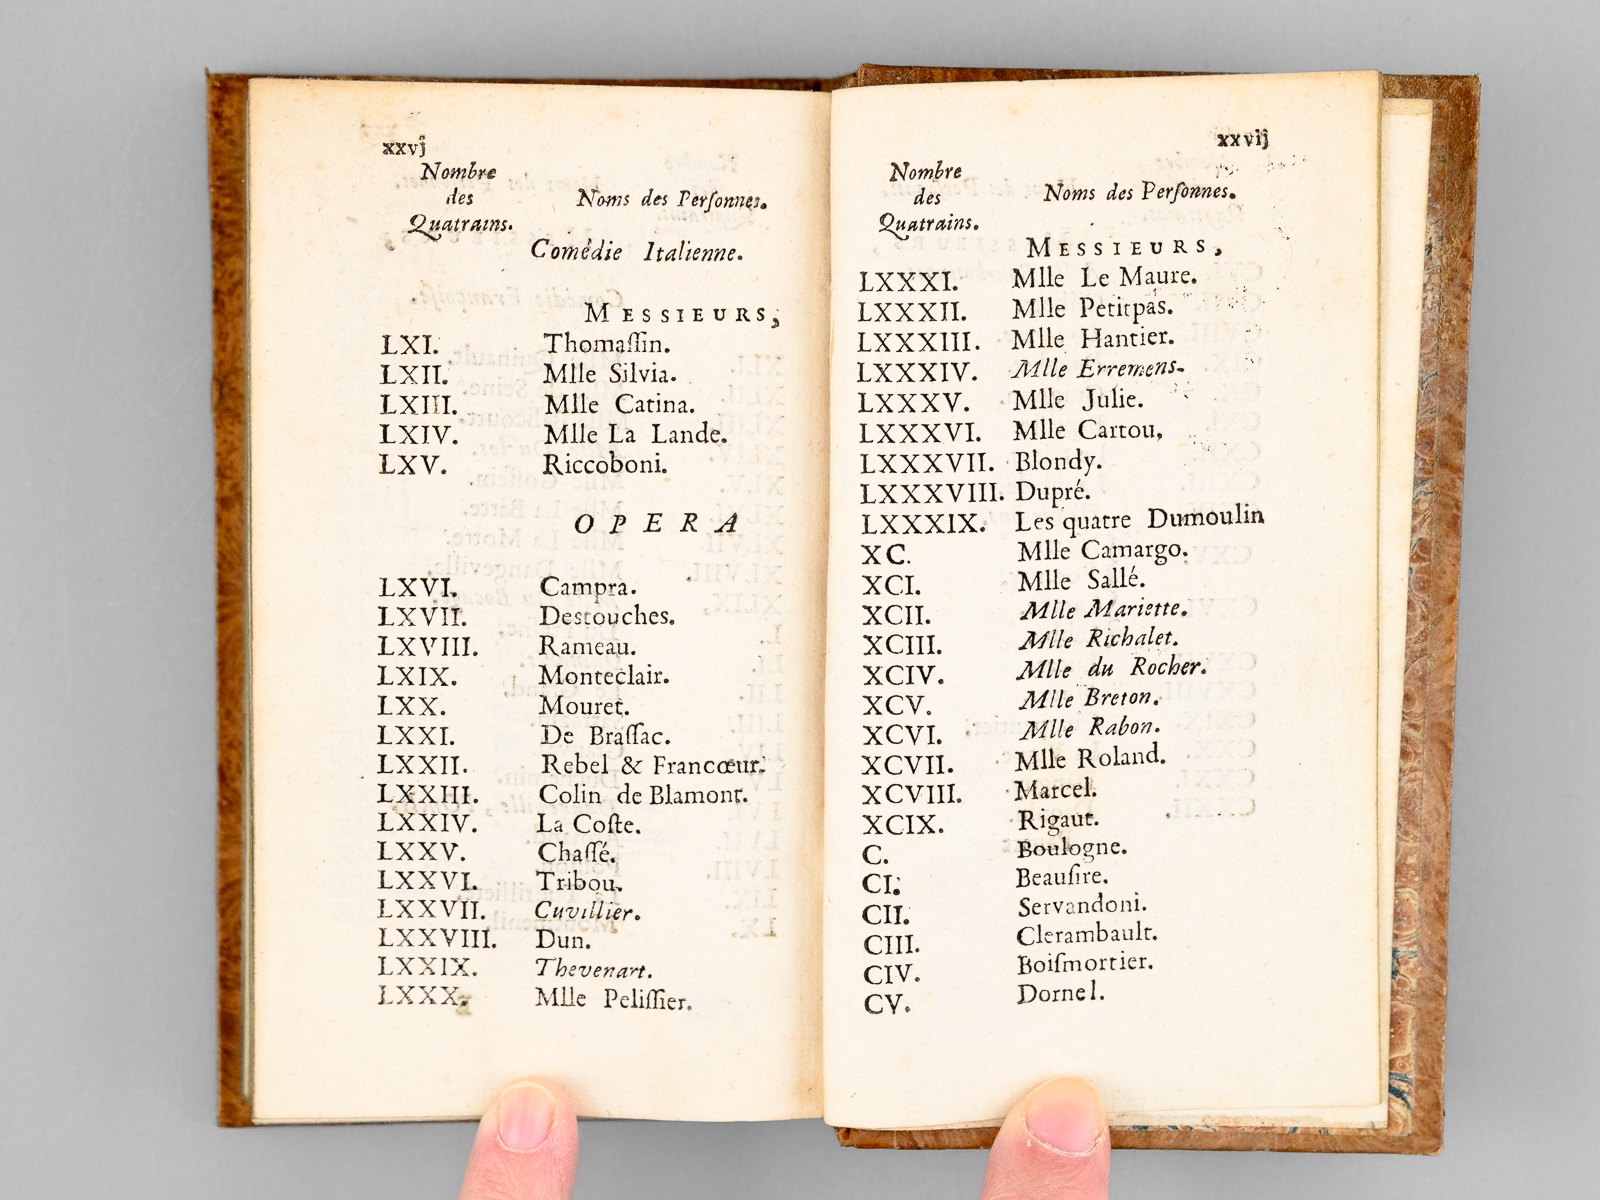 xxvj
Nombre
des
Quatrains.
Noms des Perſonnes.
Comédie Italienne.
MESSIEURS,
LXI. Thomaſſin.
LXII. Mlle Silvia.
LXIII. Mlle Catina.
LXIV. Mlle La Lande.
LXV. Riccoboni.
OPERA
LXVI. Campra.
LXVII. Destouches.
LXVIII. Rameau.
LXIX. Monteclair.
LXX. Mouret.
LXXI. De Braſſac.
LXXII. Rebel & Francœur.
LXXIII. Colin de Blamont.
LXXIV. La Coſte.
LXXV. Chaſſé.
LXXVI. Tribou.
LXXVII. Cuvillier.
LXXVIII. Dun.
LXXIX. Thevenart.
LXXX. Mlle Peliſſier.
xxvij
Nombre
des
Quatrains.
Noms des Perſonnes.
MESSIEURS,
LXXXI. Mlle Le Maure.
LXXXII. Mlle Petitpas.
LXXXIII. Mlle Hantier.
LXXXIV. Mlle Erremens.
LXXXV. Mlle Julie.
LXXXVI. Mlle Cartou,
LXXXVII. Blondy.
LXXXVIII. Dupré.
LXXXIX. Les quatre Dumoulin
XC. Mlle Camargo.
XCI. Mlle Sallé.
XCII. Mlle Mariette.
XCIII. Mlle Richalet.
XCIV. Mlle du Rocher.
XCV. Mlle Breton.
XCVI. Mlle Rabon.
XCVII. Mlle Roland.
XCVIII. Marcel.
XCIX. Rigaut.
C. Boulogne.
CI. Beauſire.
CII. Servandoni.
CIII. Clerambault.
CIV. Boiſmortier.
CV. Dornel.